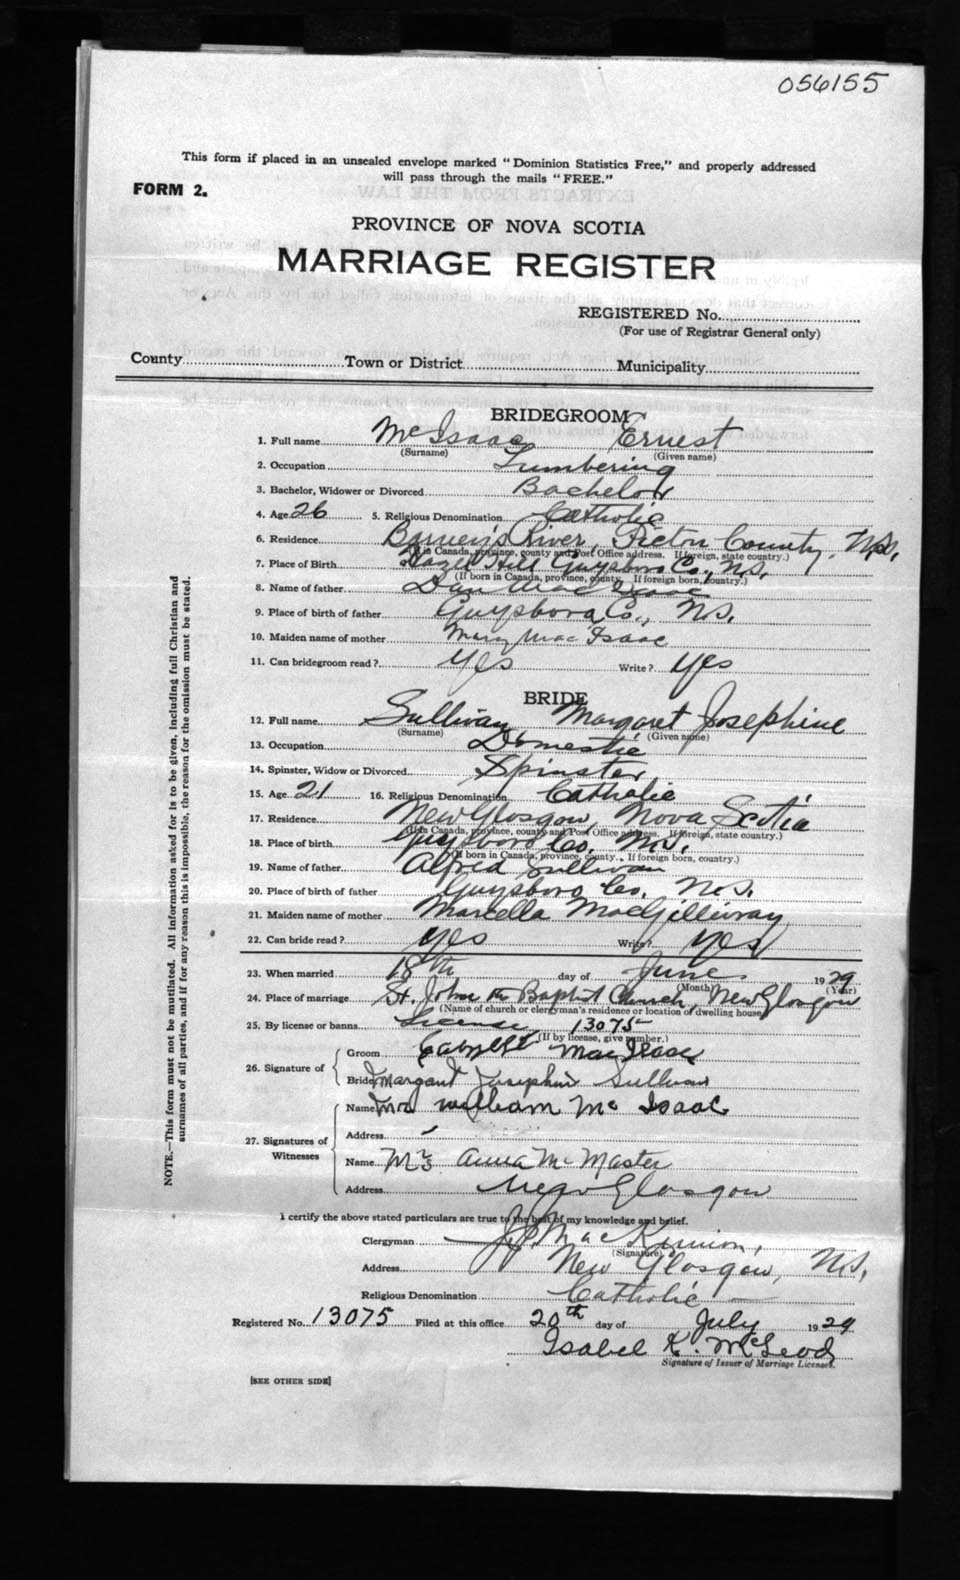 056155
This form if placed in an unsealed envelope marked "Dominion Statistics Free," and properly addressed
will pass through the mails "FREE."
FORM 2.
PROVINCE OF NOVA SCOTIA
MARRIAGE REGISTER
REGISTERED No.
(For use of Registrar General only)
County Town or District Municipality
BRIDEGROOM
1. Full name McIsaac Ernest
(Surname) (Given name)
2. Occupation Lumbering
3. Bachelor, Widower or Divorced Bachelor
4. Age 26 5. Religious Denomination Catholic
6. Residence Barney's River, Pictou County, N.S.
(If in Canada, province, county and Post Office address. If foreign, state country.)
7. Place of Birth Hazel Hill Guysboro Co., N.S.
(If born in Canada, province, county. If foreign born, country.)
8. Name of father Dan MacIsaac
9. Place of birth of father Guysboro Co., N.S.
10. Maiden name of mother Mary MacIsaac
11. Can bridegroom read? Yes Write? Yes
BRIDE
12. Full name Sullivan Margaret Josephine
(Surname) (Given name)
13. Occupation Domestic
14. Spinster, Widow or Divorced Spinster
15. Age 21 16. Religious Denomination Catholic
17. Residence New Glasgow, Nova Scotia
(If in Canada, province, county and Post Office address. If foreign, state country.)
18. Place of birth Guysboro Co. N.S.
(If born in Canada, province, county. If foreign born, country.)
19. Name of father Alfred Sullivan
20. Place of birth of father Guysboro Co. N.S.
21. Maiden name of mother Marcella MacGillivray
22. Can bride read? Yes Write? Yes
23. When married 18th day of June 1929
(Month) (Year)
24. Place of marriage St. John the Baptist Church, New Glasgow
(Name of church or clergyman's residence or location of dwelling house)
25. By license or banns License 13075
(If by license, give number.)
26. Signature of Groom MacIsaac
Bride Margaret Josephine Sullivan
27. Signatures of Witnesses Name Mrs William McIsaac
Address
Name Mrs Anna McMaster
Address New Glasgow
I certify the above stated particulars are true to the best of my knowledge and belief.
Clergyman J. P. MacKinnon,
(Signature)
Address New Glasgow, N.S.
Religious Denomination Catholic
Registered No. 13075 Filed at this office 20th day of July 1929
Isabel K. McLeod
Signature of Issuer of Marriage Licenses.
[SEE OTHER SIDE]
NOTE.—This form must not be mutilated. All information asked for is to be given, including full Christian and
surnames of all parties, and if for any reason this is impossible, the reason for the omission must be stated.